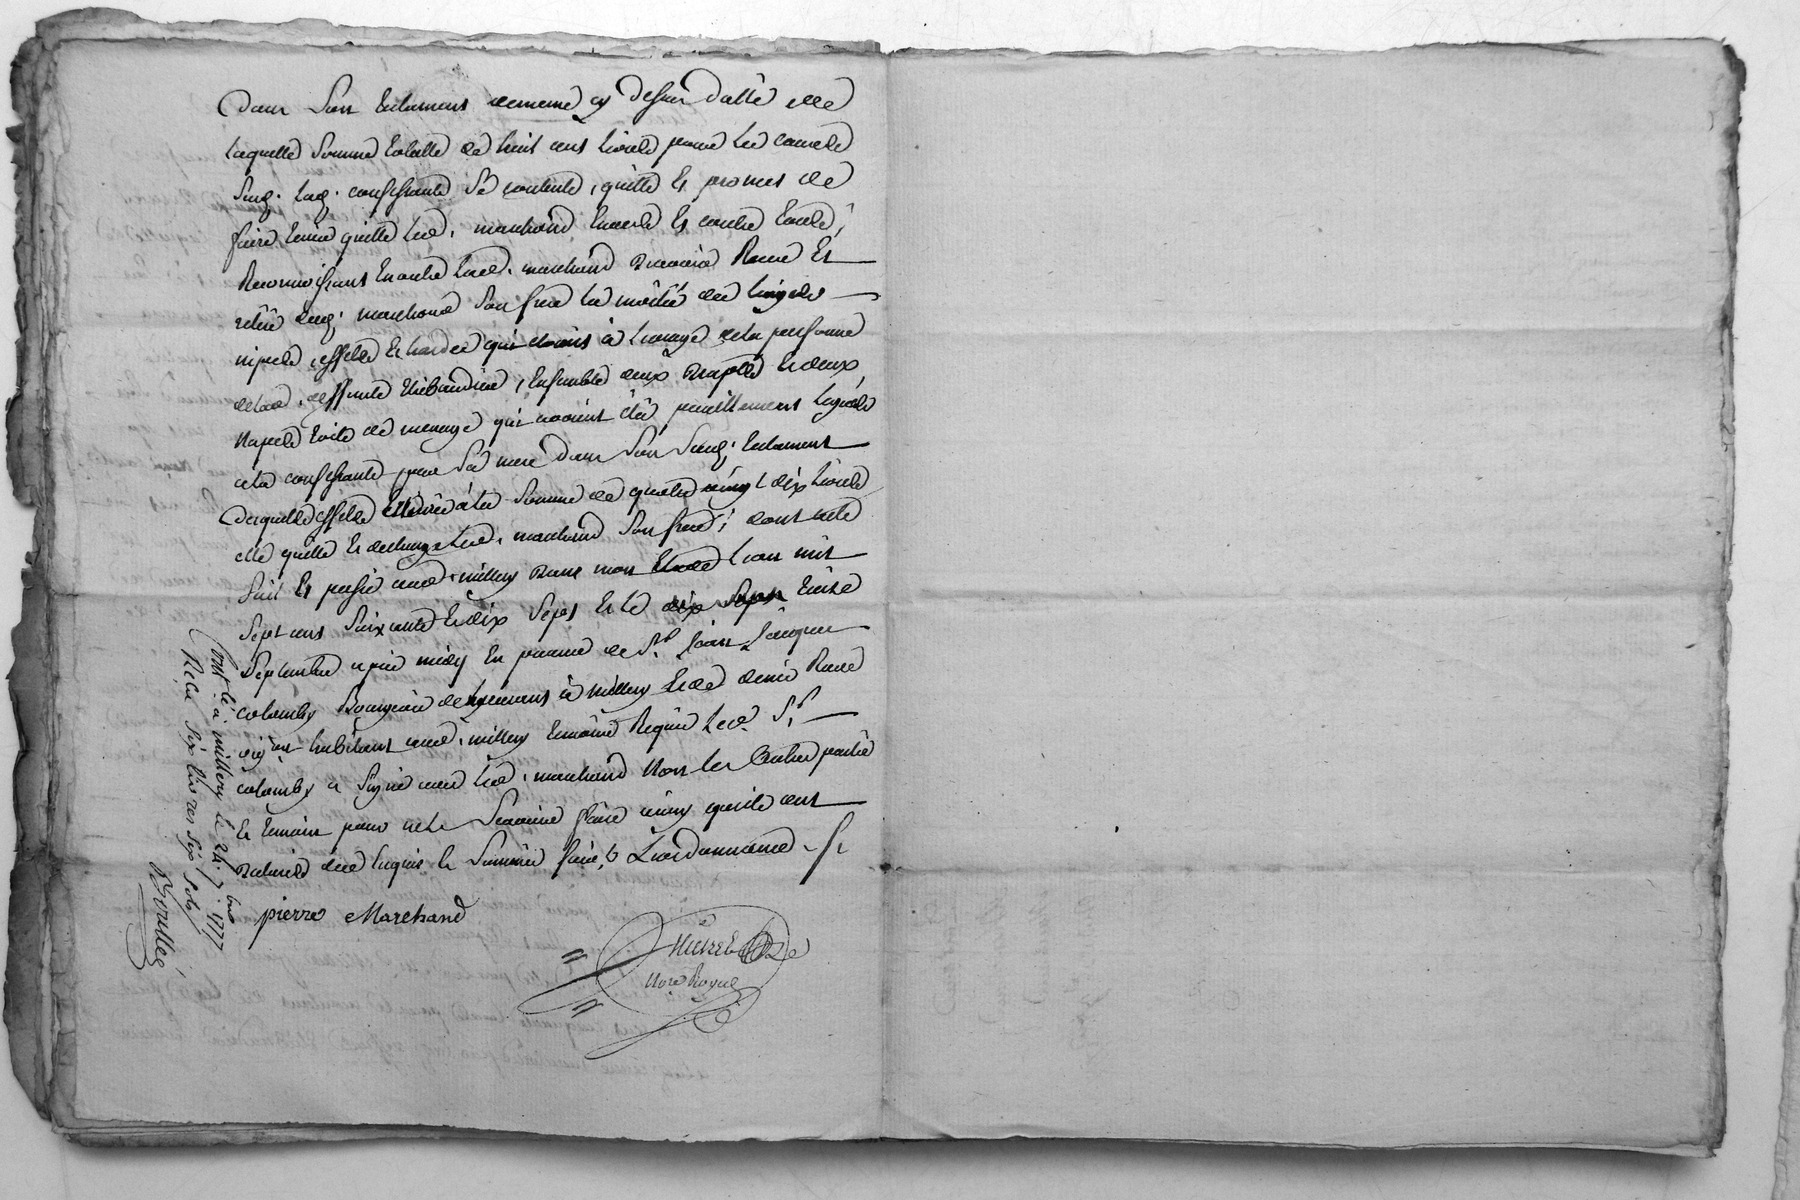 dans son testament dernier cy dessus datté
laquelle somme totalle de huit cens livres pour les causes
susd. lad. confessante se contente, quitte et promet de
faire tenir quitte led. marchand envers et contre tous,
Reconnoissant en outre lad. marchand avoir Receu et
retiré dud. marchand son frere la moitié des linges
nipes, effets et hardes qui etoient à l'usage de la personne
de lad. deffunte thibaudier, ensemble deux nappes et deux
napes toile de menage qui avoient été pareillement legués
a la confessante par sa mere dans son susd. testament
desquels effets à la somme de quatre vingt dix livres
elle quitte et decharge led. marchand son frere, dont acte
fait et passé aud. millery dans mon Etude l'an mil
sept cens soixante et dix sept et le treize
Septembre après midy en presence de Sr. Jean Jacques
colomby Bourgeois demeurant à millery et de denis
habitant aud. millery temoins Requis led. Sr.
colomby a signé avec led. marchand non les autres parties
et temoin pour ne le Scavoir faire ainsy qu'ils ont
declaré de ce enquis et sommés suivt. L'ordonnance
pierre Marchand
Nore Royal
Cont. lé à millery le 24. 7bre 1777
Reçu Six livres six sols
Boullée